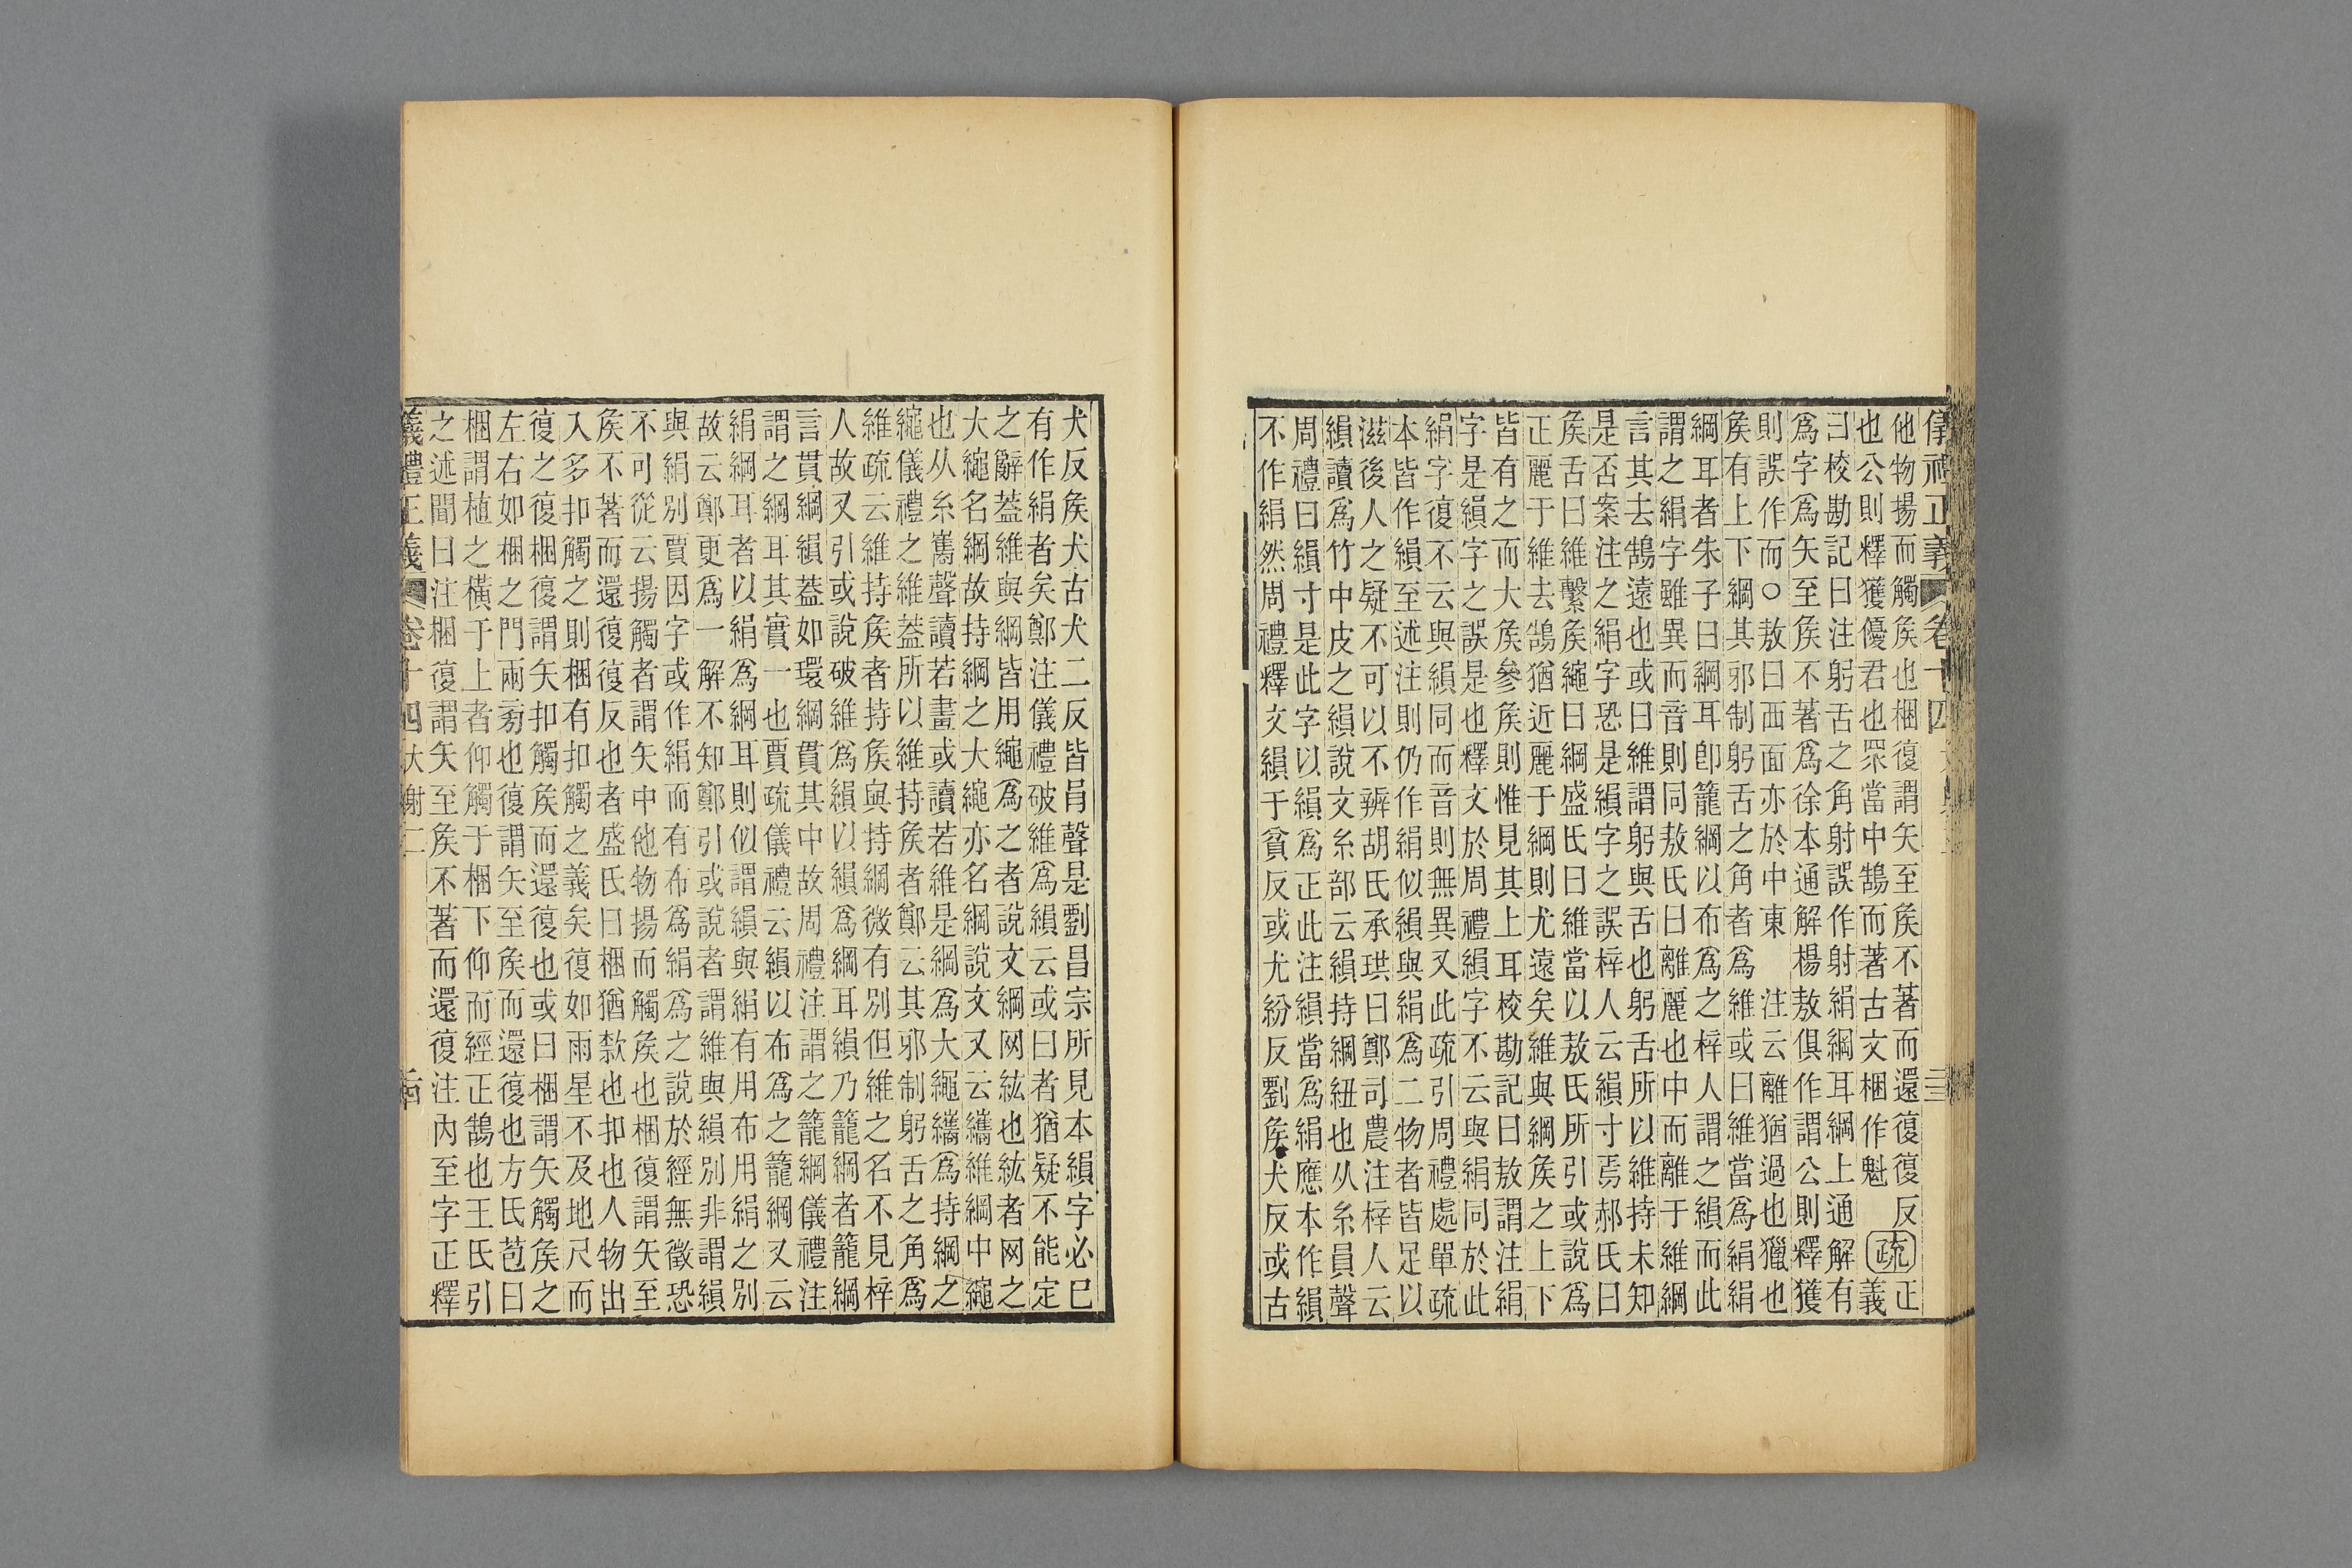 儀禮正義 卷十四
他物揚而觸矦也梱復謂矢至矦不著而還復復反 正
也公則釋獲優君也眾當中鵠而著古文梱作魁 疏 義
曰校勘記曰注躬舌之角射誤作射絹綱耳綱上通解有
爲字爲矢至矦不著爲徐本通解楊敖俱作謂公則釋獲
則誤作而○敖曰西面亦於中東 注云離猶過也獵也
矦有上下綱其邪制躬舌之角者爲維或曰維當爲絹絹
綱耳者朱子曰綱耳卽籠綱以布爲之梓人謂之縜而此
謂之絹字雖異而音則同敖氏曰離麗也中而離于維綱
言其去鵠遠也或曰維謂躬與舌也躬舌所以維持未知
是否案注之絹字恐是縜字之誤梓人云縜寸焉郝氏曰
矦舌曰維繫矦繩曰綱盛氏曰維當以敖氏所引或說爲
正麗于維去鵠猶近麗于綱則尤遠矣維與綱矦之上下
皆有之而大矦參矦則惟見其上耳校勘記曰敖謂注絹
字是縜字之誤是也釋文於周禮縜字不云與絹同於此
絹字復不云與縜同而音則無異又此疏引周禮處單疏
本皆作縜至述注則仍作絹似縜與絹爲二物者皆足以
滋後人之疑不可以不辨胡氏承珙曰鄭司農注梓人云
縜讀爲竹中皮之縜說文糸部云縜持綱紐也从糸員聲
周禮曰縜寸是此字以縜爲正此注縜當爲絹應本作縜
不作絹然周禮釋文縜于貧反或尤紛反劉矦犬反或古
犬反矦犬古犬二反皆肙聲是劉昌宗所見本縜字必巳
有作絹者矣鄭注儀禮破維爲縜云或曰者猶疑不能定
之辭蓋維與綱皆用繩爲之者說文綱网紘也紘者网之
大繩名綱故持綱之大繩亦名綱說文又云纗維綱中繩
也从糸巂聲讀若畫或讀若維是綱爲大繩纗爲持綱之
繩儀禮之維蓋所以維持矦者鄭云其邪制躬舌之角爲
維疏云維持矦者持矦與持綱微有別但維之名不見梓
人故又引或說破維爲縜以縜爲綱耳縜乃籠綱者籠綱
言貫綱縜蓋如環綱貫其中故周禮注謂之籠綱儀禮注
謂之綱耳其實一也賈疏儀禮云縜以布爲之籠綱又云
絹綱耳者以絹爲綱耳則似謂縜與絹有用布用絹之別
故云鄭更爲一解不知鄭引或說者謂維與縜別非謂縜
與絹別賈因字或作絹而有布爲絹爲之說於經無徵恐
不可從云揚觸者謂矢中他物揚而觸矦也梱復謂矢至
矦不著而還復復反也者盛氏曰梱猶欵也扣也人物出
入多扣觸之則梱有扣觸之義矣復如雨星不及地尺而
復之復梱復謂矢扣觸矦而還復也或曰梱謂矢觸矦之
左右如梱之門兩旁也復謂矢至矦而還復也方氏苞曰
梱謂植之橫于上者仰觸于梱下仰而經正鵠也王氏引
之述聞曰注梱復謂矢至矦不著而還復注內至字正釋
儀禮正義 卷十四 大射二